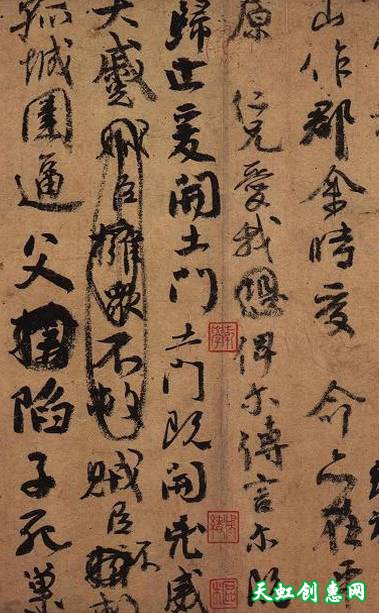 山作郡余時受命亦在平
原仁兄愛我俾尓傳言尓既
歸止爰開土門土門既開兇威
大蹙賊臣擁衆不救賊臣不
孤城圍逼父陷子死巢
天虹创惠网